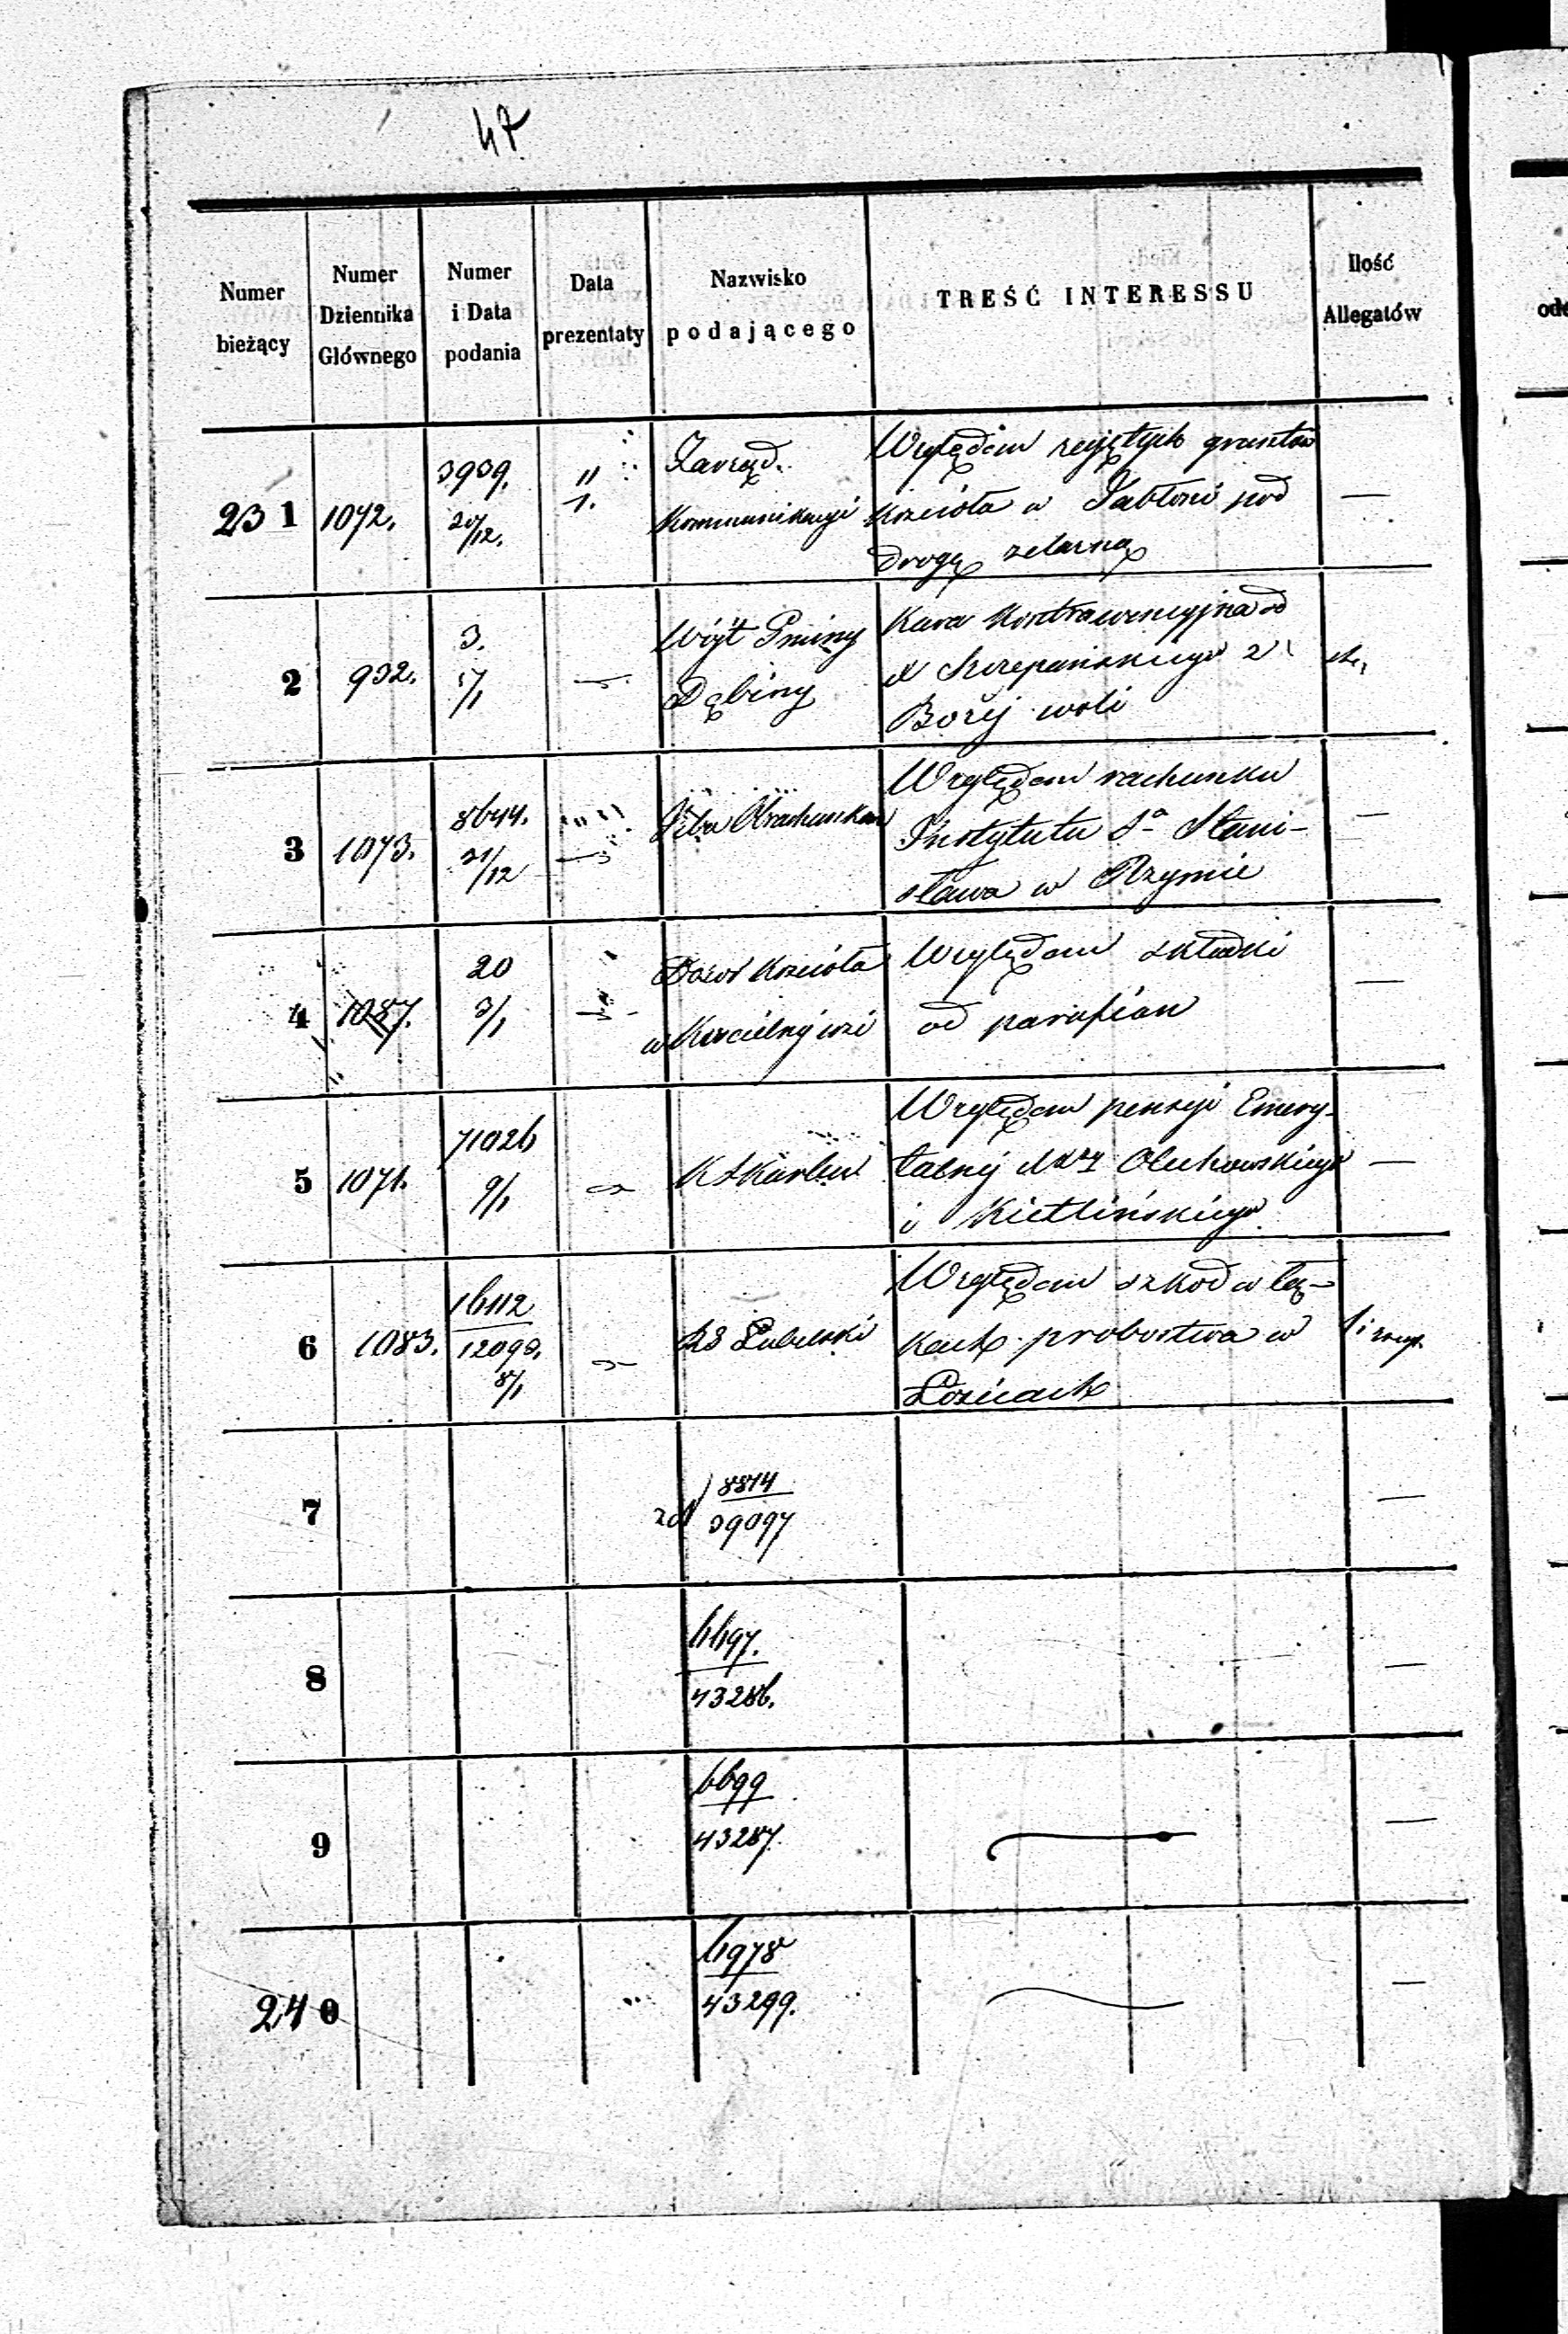 47
Numer bieżący
Numer Dziennika Głównego
Numer i Data podania
Data prezentaty
Nazwisko podającego
TREŚĆ INTERESSU
Ilość Allegatów
231
1072.
3939.
20/12.
11
1.
Zarząd
Kommunikacyi
Względem zajętych gruntów
Kościoła w Jabłoni pod
drogę żelazną
—
2
932.
3.
5/1
Wójt Gminy
Dębiny
Kara Kontrawencyjna od
Szczepańskiego z
Bożej woli
3
1073.
8644.
21/12
Izba Obrachunkow
Względem rachunku
Instytutu Sgo Stani-
sława w Rzymie
—
4
1087.
20
3/1
Dozór Kościoła
w Kościelnej wsi
Względem składki
od parafian
—
5
1071.
71026
9/1
K S Karbu
Względem pensyi Emery-
talnej Olechowskiego
i Kietlińskiego
—
6
1083.
16112
12090.
8/1
RG Lubelski
Względem szkód w łą-
kach probostwa w
Łosicach
7
8814
39097
—
8
6697.
43286.
—
9
6699
43287.
—
240
6978
43299.
—